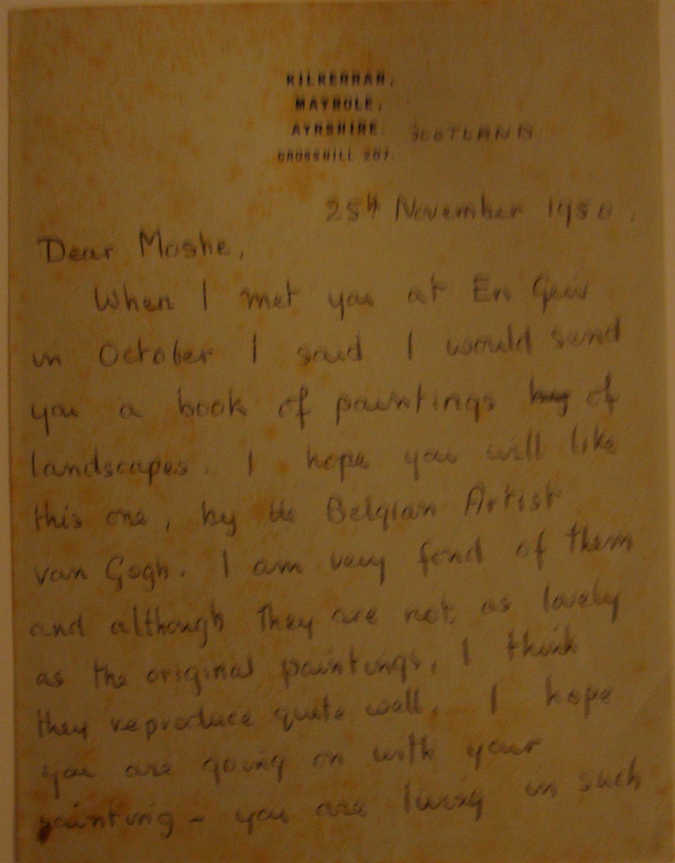 KILKERRAN,
MAYBOLE,
AYRSHIRE. SCOTLAND
CROSSHILL 207.
25th November 1950.
Dear Moshe,
When I met you at En Gev
in October I said I would send
you a book of paintings by of
landscapes. I hope you will like
this one, by the Belgian Artist
van Gogh. I am very fond of them
and although they are not as lovely
as the original paintings, I think
they reproduce quite well. I hope
you are going on with your
painting - you are living in such